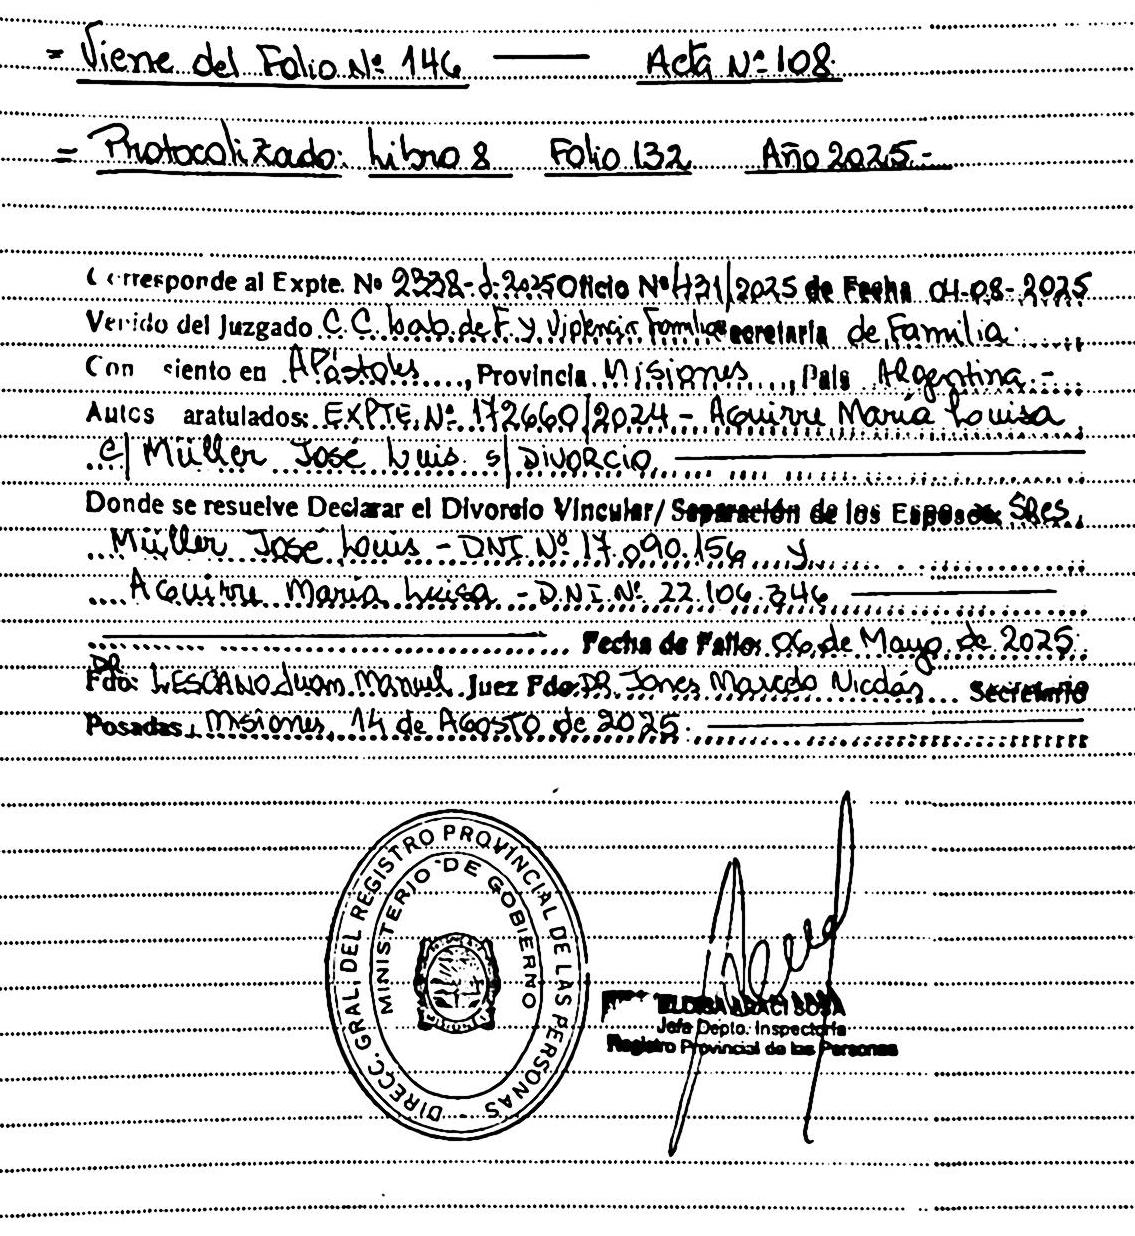 = Viene del Folio Nº 146 — Acta Nº 108.
= Protocolizado: Libro 8 Folio 132 Año 2025.-
Corresponde al Expte. Nº 2338-J-2025 Oficio Nº 431/2025 de Fecha 04-08-2025
Venido del Juzgado C.C. Lab. de F. y Violencia Familiar Secretaria de Familia.
Con siento en Apóstoles, Provincia Misiones, Pais Argentina.-
Autos aratulados: EXPTE. Nº 172660/2024 - Aguirre María Louisa
c/ Müller José Luis s/ DIVORCIO,
Donde se resuelve Declarar el Divorcio Vincular/Separación de los Esposos Sres
Müller José Louis - DNI. Nº 17.090.156 y
Aguirre María Luisa - D.N.I. Nº 22.106.346
Fecha de Fallo: 06 de Mayo de 2025.
DR
Fdo: LESCANO Juan Manuel Juez Fdo: DR Jones Marcelo Nicolás Secretario
Posadas, Misiones, 14 de AGOSTO de 2025.
DIRECC. GRAL. DEL REGISTRO PROVINCIAL DE LAS PERSONAS -
MINISTERIO DE GOBIERNO
ELOISA ARACI SOSA
Jefe Depto. Inspectoría
Registro Provincial de las Personas